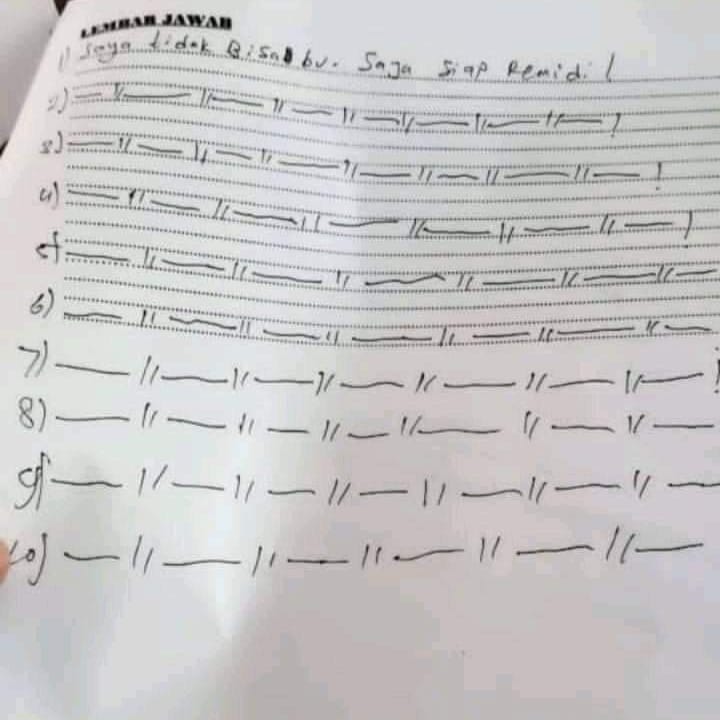 LEMBAR JAWAB
1) Saya tidak Bisa bu. Saya siap Remidi!
2) — // — // — // — // — // — // — // — !
3) — // — // — // — // — // — // — // — !
4) — // — // — // — // — // — // — !
5) — // — // — // — // — // — // —
6) — // — // — // — // — // — // —
7) — // — // — // — // — // — // — !
8) — // — // — // — // — // — // —
9) — // — // — // — // — // — // —
10) — // — // — // — // — // —